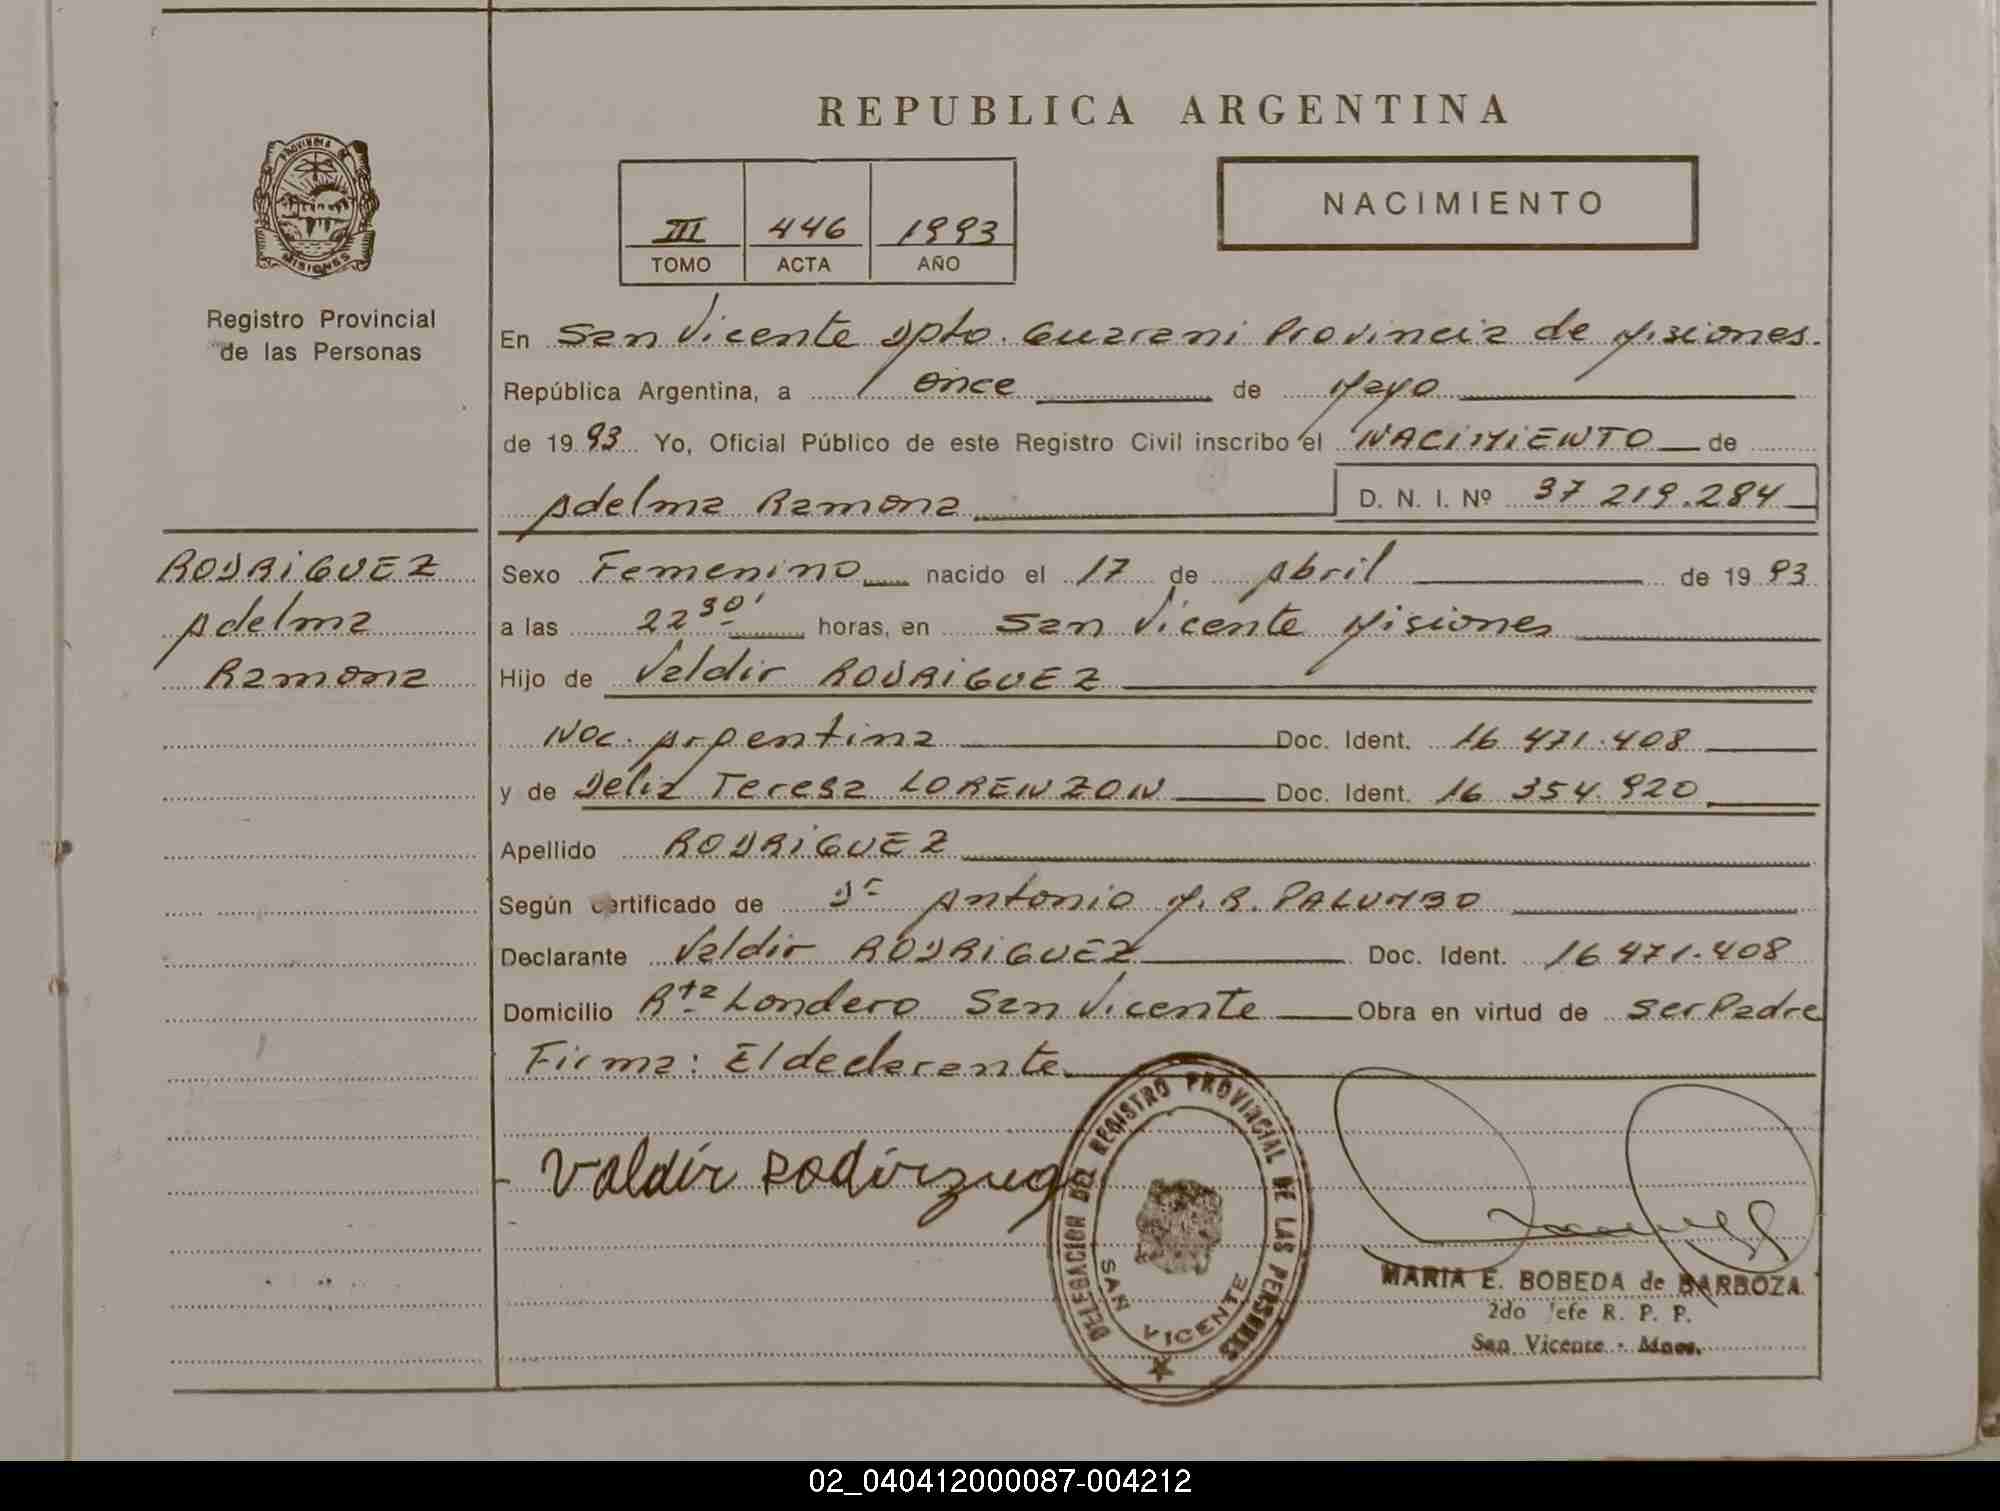 REPUBLICA ARGENTINA
PROVINCIA DE
MISIONES
Registro Provincial
de las Personas
NACIMIENTO
III 446 1993
TOMO ACTA AÑO
En San Vicente Dpto. Guarani Provincia de Misiones.
República Argentina, a once de Mayo
de 1993 Yo, Oficial Público de este Registro Civil inscribo el NACIMIENTO de
Adelma Ramona D. N. I. Nº 37 219.284
RODRIGUEZ
Adelma
Ramona
Sexo Femenino nacido el 17 de Abril de 1993
a las 22 30' horas, en San Vicente Misiones
Hijo de Valdir RODRIGUEZ
Nac. Argentina Doc. Ident. 16 471.408
y de Delia Teresa LORENZON Doc. Ident. 16 354.920
Apellido RODRIGUEZ
Según certificado de Dr Antonio M. R. PALUMBO
Declarante Valdir RODRIGUEZ Doc. Ident. 16 471.408
Domicilio Rta Londero San Vicente Obra en virtud de ser Padre
Firma: El declarante
Valdir
DELEGACION DEL REGISTRO PROVINCIAL DE LAS PERSONAS
SAN VICENTE
MARIA E. BOBEDA de BARBOZA
2do Jefe R. P. P.
San Vicente - Mnes.
02_040412000087-004212